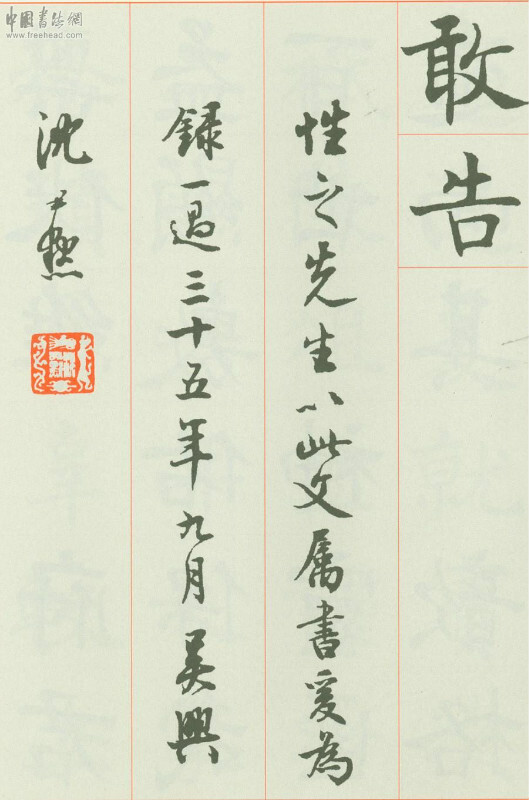 中國書法網
www.freehead.com
敢告
性之先生以此文属書爰為
録一過三十五年九月吴興
沈尹默